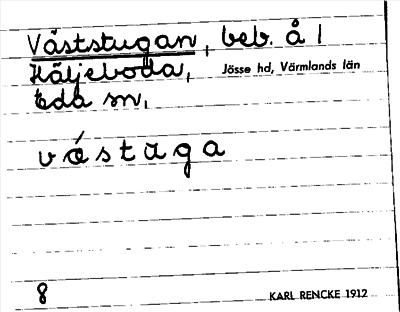 Väststugan, beb. å 1
Häljeboda, Jösse hd, Värmlands län
Eda sn,
våstuga
8
KARL RENCKE 1912